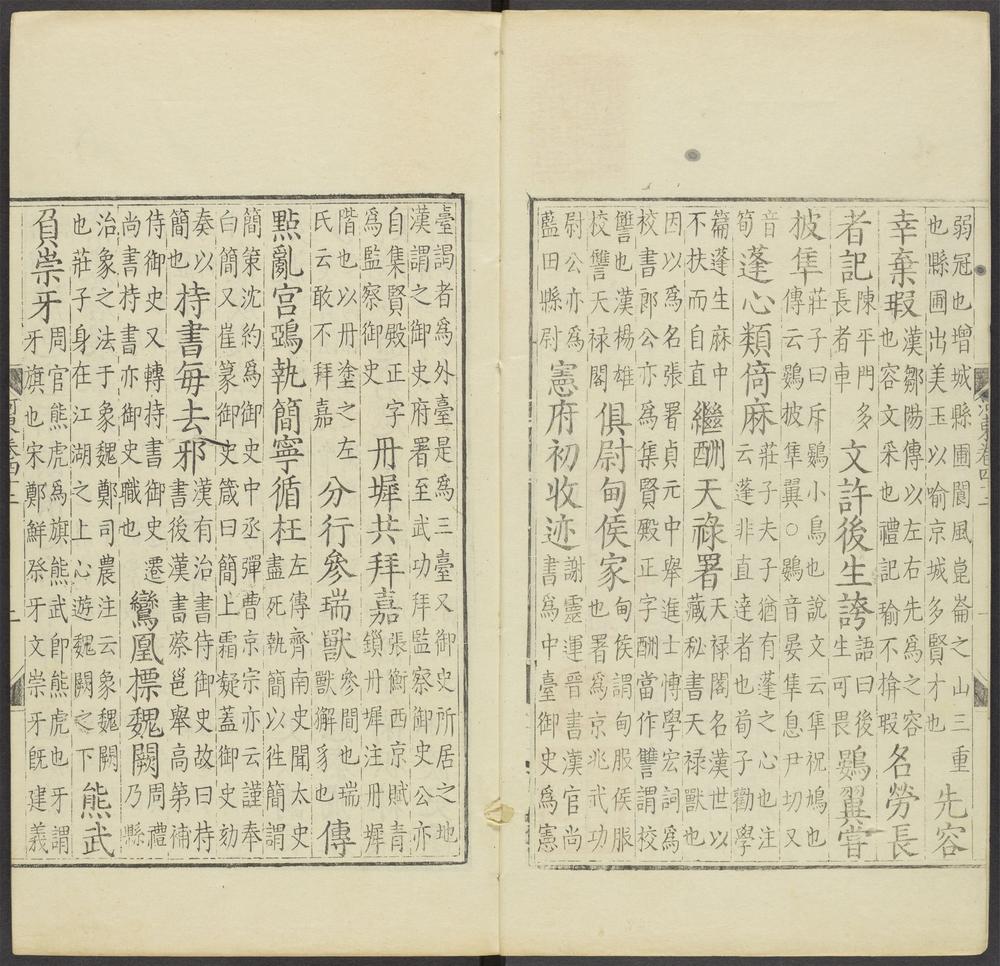 弱冠也增城縣圃閬風崑崙之山三重
也縣圃出美玉以喻京城多賢才也
先容
幸棄瑕
漢鄒陽傳以左右先爲之容
也容文采也禮記瑜不揜瑕
名勞長
者記
陳平門多
長者車
文許後生誇
語曰後
生可畏
鷃翼甞
披隼
莊子曰斥鷃小鳥也說文云隼祝鳩也
傳云鷃披隼翼○鷃音晏隼息尹切又
音
筍
蓬心類倚麻
莊子夫子猶有蓬之心也注
云蓬非直達者也荀子勸學
篇蓬生麻中
不扶而自直
繼酬天祿署
天祿閣名漢世以
藏秘書天祿獸也
因以爲名張署貞元中舉進士博學宏詞爲
校書郎公亦爲集賢殿正字酬當作讎謂校
讎也漢楊雄
校讎天祿閣
俱尉甸侯家
甸侯謂甸服侯服
也署爲京兆武功
尉公亦爲
藍田縣尉
憲府初收迹
謝靈運晉書漢官尚
書爲中臺御史爲憲
臺謁者爲外臺是爲三臺又御史所居之地
漢謂之御史府署至武功拜監察御史公亦
自集賢殿正字
爲監察御史
丹墀共拜嘉
張衡西京賦青
鎖丹墀注丹墀
階也以丹塗之左
氏云敢不拜嘉
分行參瑞獸
參間也瑞
獸獬豸也
傳
點亂宮鵶執簡寧循枉
左傳齊南史聞太史
盡死執簡以徃簡謂
簡策沈約爲御史中丞彈曹京宗亦云謹奉
白簡又崔篆御史箴曰簡上霜凝蓋御史劾
奏以
簡也
持書每去邪
漢有治書侍御史故曰持
書後漢書蔡邕舉高第補
侍御史又轉持書御史遷
尚書持書亦御史職也
鸞凰標魏闕
周禮
乃縣
治象之法于象魏鄭司農注云象魏闕
也莊子身在江湖之上心遊魏闕之下
熊武
負崇牙
周官熊虎爲旗熊武卽熊虎也牙謂
牙旗也宋鄭鮮祭牙文崇牙既建義